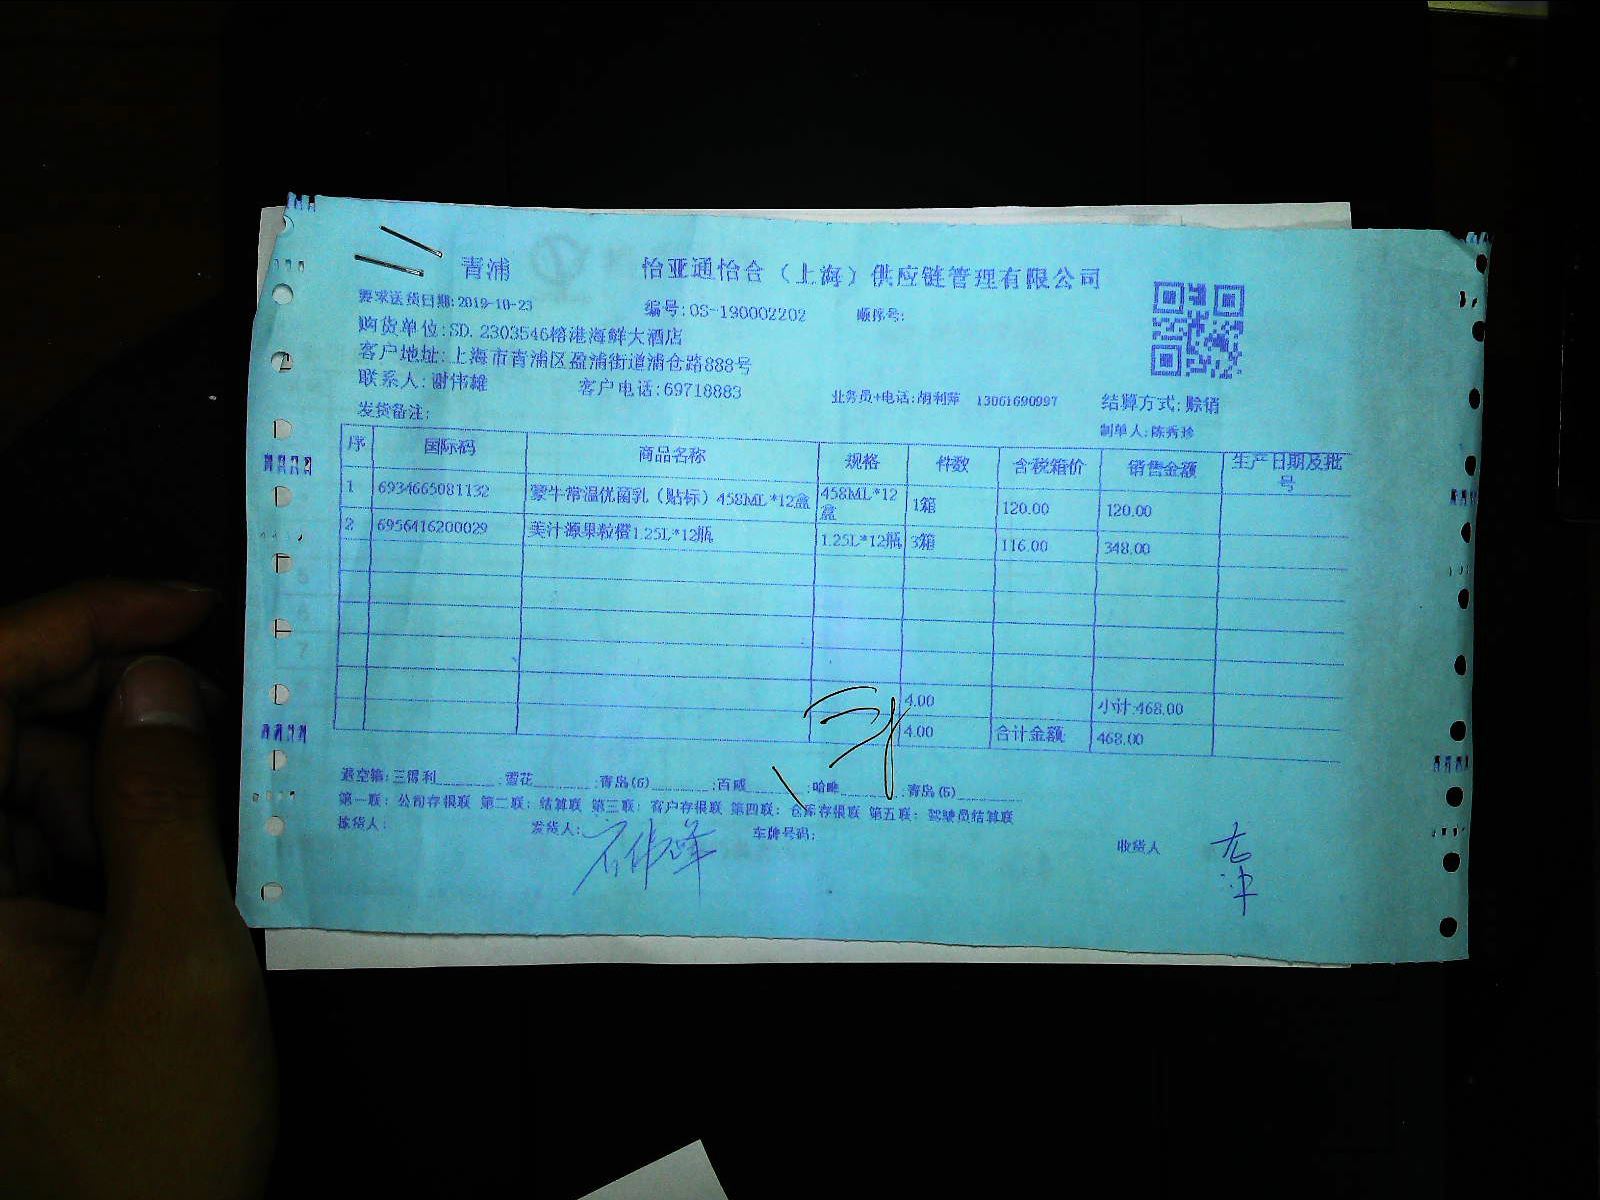 青浦 怡亚通怡合（上海）供应链管理有限公司
要求送货日期:2019-10-23 编号:OS-190002202 顺序号:
购货单位:SD.2303546榕港海鲜大酒店
客户地址:上海市青浦区盈浦街道浦仓路888号
联系人:谢伟雄 客户电话:69718883 业务员+电话:胡利萍 13061690997 结算方式:赊销
发货备注: 制单人:陈秀珍
序 国际码 商品名称 规格 件数 含税箱价 销售金额 生产日期及批号
1 6934665081132 蒙牛常温优菌乳（贴标）458ML*12盒 458ML*12盒 1箱 120.00 120.00
2 6956416200029 美汁源果粒橙1.25L*12瓶 1.25L*12瓶 3箱 116.00 348.00
4.00 小计:468.00
4.00 合计金额: 468.00
退空箱:三得利 :雪花 :青岛(6) :百威 :哈啤 :青岛(5)
第一联：公司存根联 第二联：结算联 第三联：客户存根联 第四联：仓库存根联 第五联：驾驶员结算联
拣货人: 发货人: 石伟峰 车牌号码: 收货人